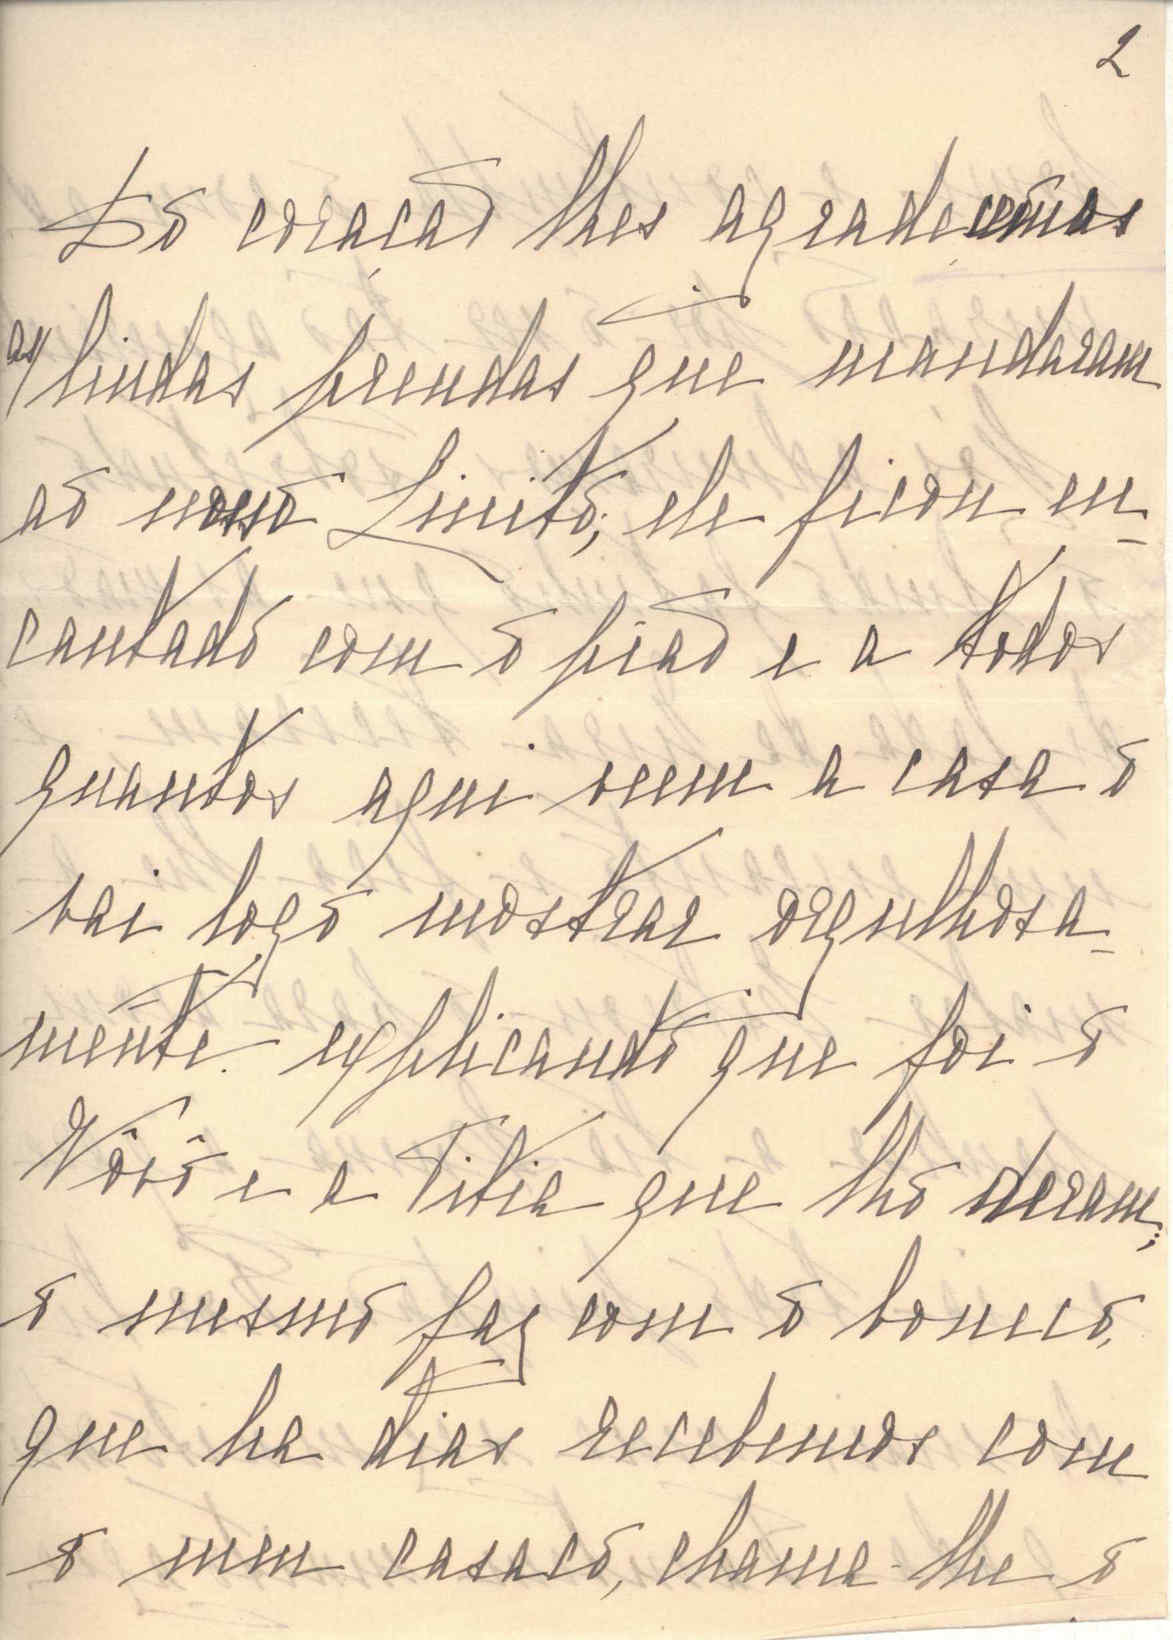 2
Do coração lhes agradecemos
as lindas prendas que mandaram
ao nosso Linito; ele ficou en-
cantado com o pião e a todos
quantos aqui veem a casa o
vai logo mostrar orgulhosa-
mente explicando que foi o
Vôvô e a Titia que lho deram;
o mesmo faz com o boneco,
que ha dias recebemos com
o meu casaco, chama-lhe o